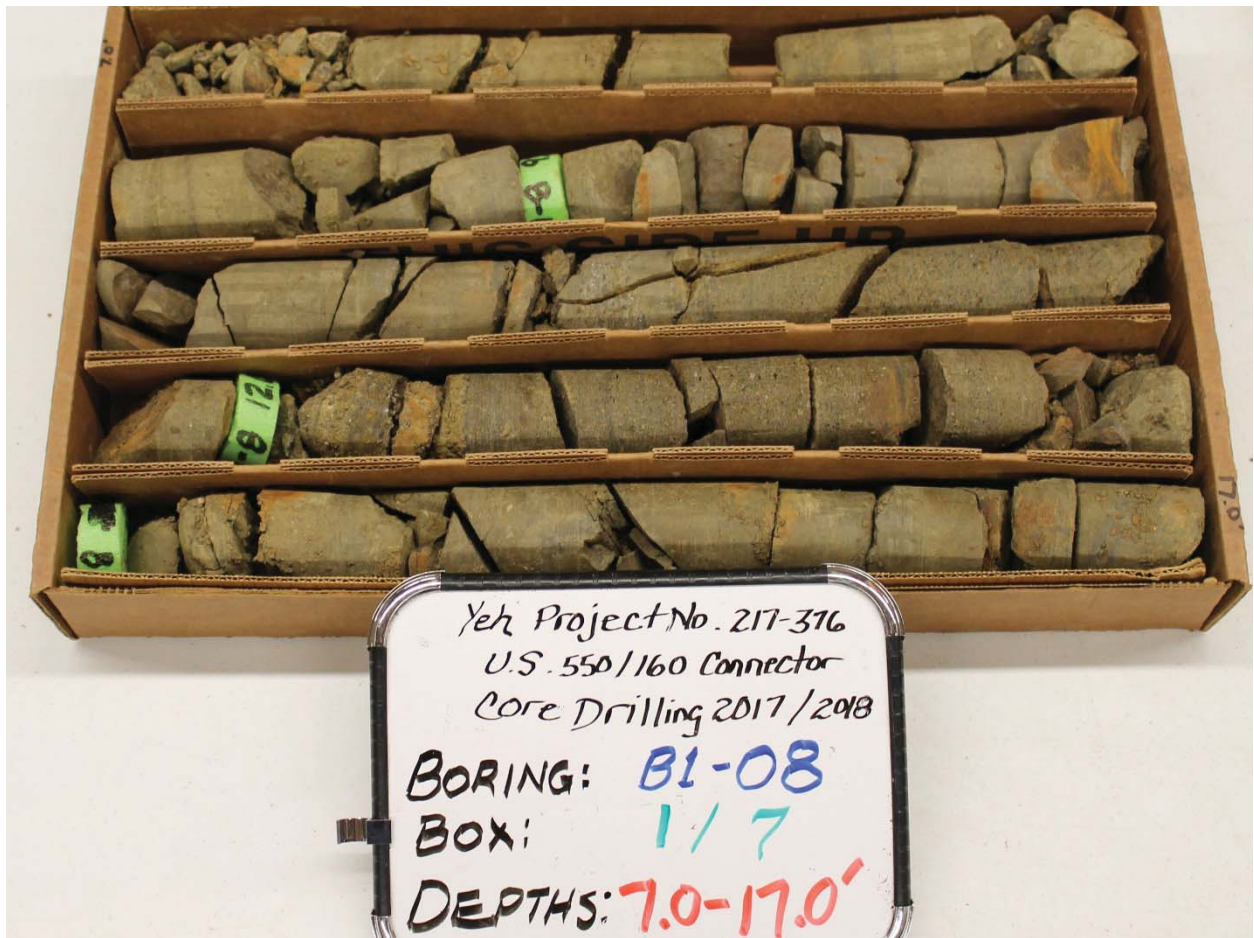 7.0'
8
THIS SIDE UP
8 12.
8
17.0'
Yeh Project No. 217-376
U.S. 550/160 Connector
Core Drilling 2017/2018
BORING: B1-08
BOX: 1/7
DEPTHS: 7.0-17.0'